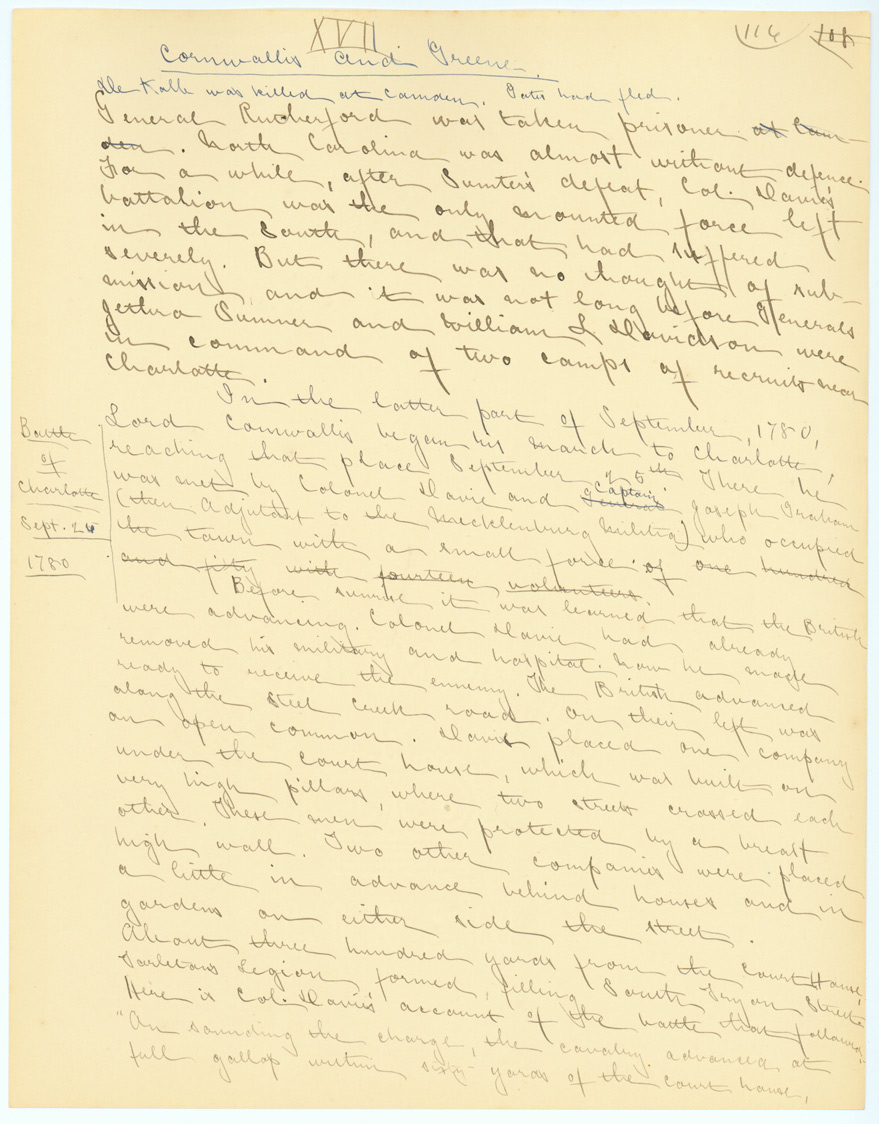 XVII
116 108
Cornwallis and Greene.
De Kalb was killed at Camden. Gates had fled.
General Rutherford was taken prisoner at Cam-
den. North Carolina was almost without defence.
For a while, after Sumter's defeat, Col. Davie's
battalion was the only mounted force left
in the South, and that had suffered
severely. But there was no thought of sub-
mission, and it was not long before Generals
Jethro Sumner and William L Davidson were
in command of two camps of recruits near
Charlotte.
In the latter part of September, 1780,
Lord Cornwallis began his march to Charlotte,
reaching that place September 26th. There he
was met by Colonel Davie and General Captain Joseph Graham
(then Adjutant to the Mecklenburg Militia) who occupied
the town with a small force of one hundred
and fifty with fourteen volunteers.
Battle
of
Charlotte
Sept. 26
1780
Before sunrise it was learned that the British
were advancing. Colonel Davie had already
removed his military and hospital. Now he made
ready to receive the ennemy. The British advanced
along the Steel Creek road. On their left was
an open common. Davie placed one company
under the court house, which was built on
very high pillars, where two streets crossed each
other. These men were protected by a breast
high wall. Two other companies were placed
a little in advance behind houses and in
gardens on either side the street.
About three hundred yards from the Court House,
Tarletons Legion formed, filling South Tryon Street.
Here is Col. Davie's account of the battle that followed:
"On sounding the charge, the cavalry advanced at
full gallop within sixty yards of the court house,